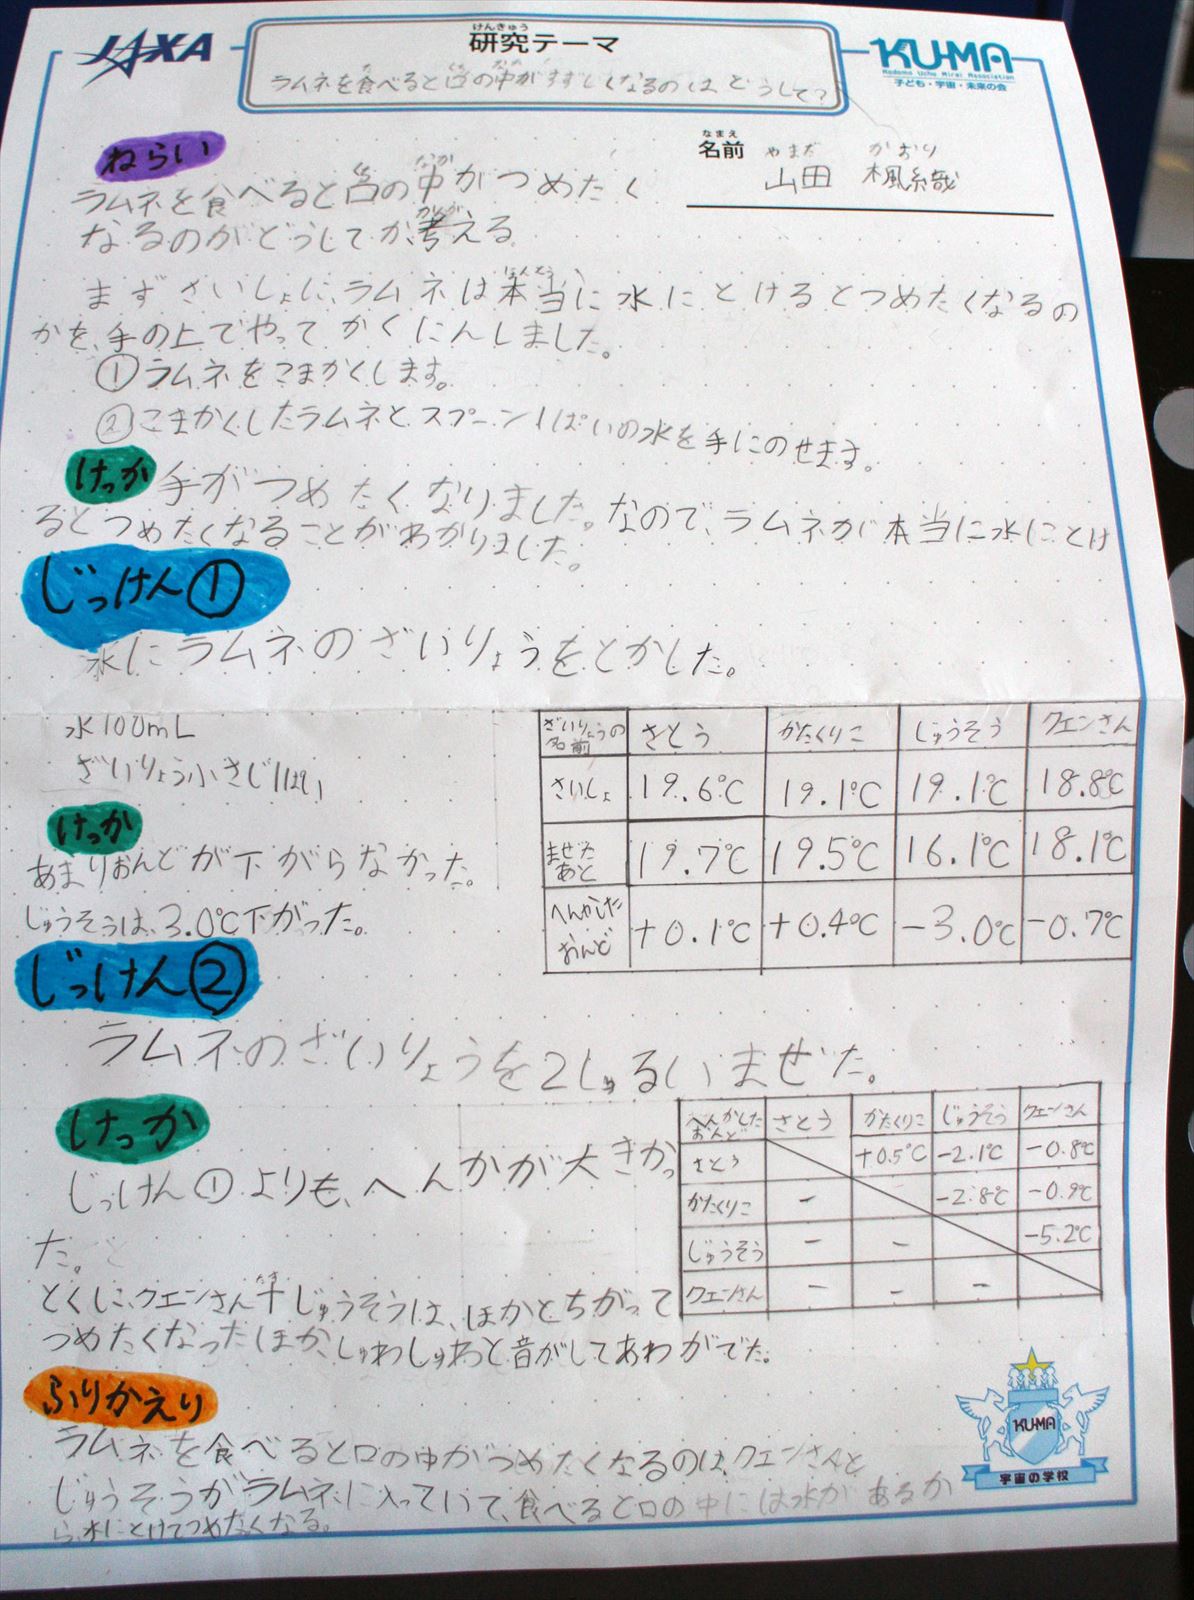 JAXA
けんきゅう
研究テーマ
ラムネを食べると口の中がすずしくなるのは、どうして?
KU-MA
Kodomo Uchu Mirai Association
子ども・宇宙・未来の会
ねらい
なまえ
名前
やまだ かおり
山田 楓織哉
ラムネを食べると口の中がつめたく
なるのがどうしてか、考える
まずさいしょに、ラムネは本当に水にとけるとつめたくなるの
かを、手の上でやってかくにんしました。
①ラムネをこまかくします。
②こまかくしたラムネと、スプーン1ぱいの水を手にのせます。
けっか 手がつめたくなりました。なので、ラムネが本当に水にとけ
るとつめたくなることがわかりました。
じっけん①
水にラムネのざいりょうをとかした。
水100mL
ざいりょう小さじ1ぱい
ざいりょうの名前 さとう かたくりこ じゅうそう クエンさん
さいしょ 19.6℃ 19.1℃ 19.1℃ 18.8℃
まぜたあと 19.7℃ 19.5℃ 16.1℃ 18.1℃
へんかしたおんど +0.1℃ +0.4℃ -3.0℃ -0.7℃
けっか
あまりおんどが下がらなかった。
じゅうそうは、3.0℃下がった。
じっけん②
ラムネのざいりょうを2しゅるいまぜた。
へんかしたおんど さとう かたくりこ じゅうそう クエンさん
さとう +0.5℃ -2.1℃ -0.8℃
かたくりこ - -2.8℃ -0.9℃
じゅうそう - - -5.2℃
クエンさん - - -
けっか
じっけん①よりも、へんかが大きかっ
た。
とくに、クエンさん+じゅうそうは、ほかとちがって
つめたくなったほか、しゅわしゅわと音がしてあわがでた。
ふりかえり
ラムネを食べると口の中がつめたくなるのは、クエンさんと
じゅうそうがラムネに入っていて、食べると口の中には水があるか
ら、水にとけてつめたくなる。
KU-MA
宇宙の学校